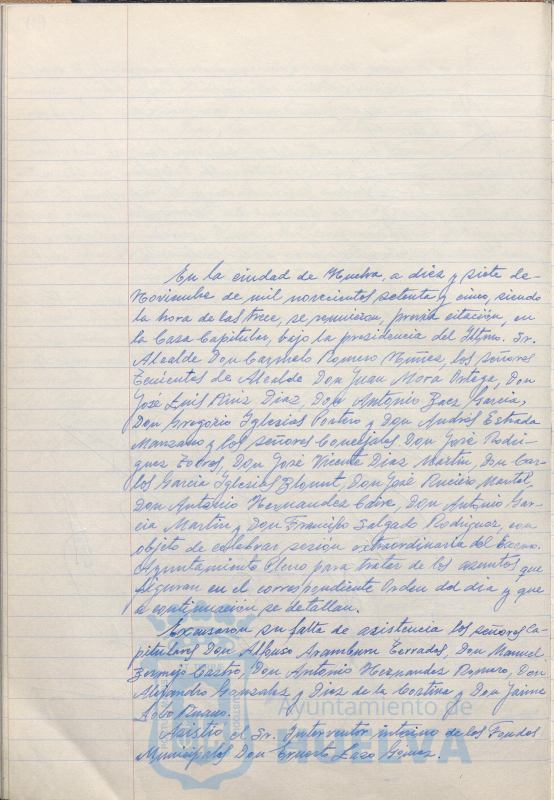 En la ciudad de Huelva, a diez y siete de
Noviembre de mil novecientos setenta y cinco, siendo
la hora de las trece, se reunieron, previa citación, en
la Casa Capitular, bajo la presidencia del Iltmo. Sr.
Alcalde Don Carmelo Romero Núñez, los señores
Tenientes de Alcalde Don Juan Mora Ortega, Don
José Luis Ruiz Diaz, Don Antonio Baez García,
Don Gregorio Iglesias Portero y Don Andrés Estrada
Manzano y los señores Concejales Don José Rodri-
guez Torres, Don José Vicente Diaz Martin, Don Car-
los García Iglesias Blount, Don José
Don Antonio Hernandez Don Antonio Gar-
cia Martin y Don Francisco Salgado Rodriguez, con
objeto de celebrar sesión extraordinaria del Excmo.
Ayuntamiento Pleno para tratar de los asuntos que
figuran en el correspondiente Orden del dia y que
a continuación se detallan.
Excusaron su falta de asistencia los señores Ca-
pitulares Don Alfonso Aramburu Terrados, Don Manuel
Bermejo Castro, Don Antonio Hernandez Romero, Don
Alejandro Gonzalez y Diez de la Cortina y Don Jaime
Asistió el Sr. Interventor interino de los Fondos
Municipales Don Ernesto Lazo Gomez.
Ayuntamiento de
HUELVA